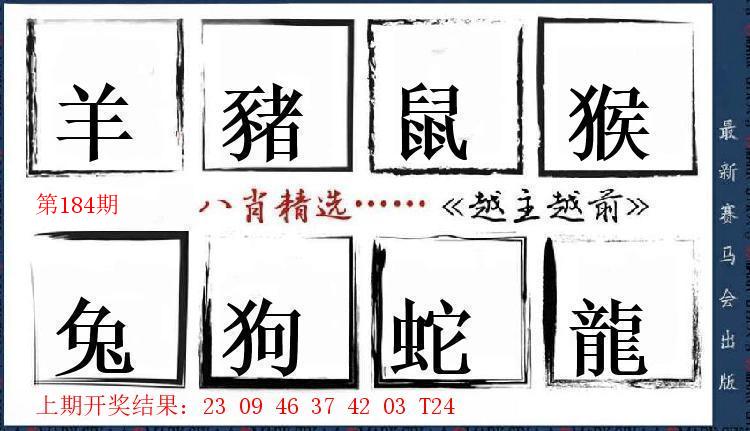 羊 豬 鼠 猴
第184期 八肖精选……《越主越前》
兔 狗 蛇 龍
上期开奖结果：23 09 46 37 42 03 T24
最新赛马会出版